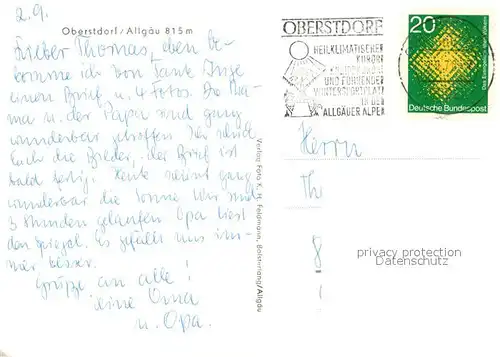 2.9.
Oberstdorf / Allgäu 815 m
Lieber Thomas, eben be-
komme ich von Tante Inge
einen Brief u. 4 Fotos. Die Ma-
ma u. der Papa sind ganz
wunderbar getroffen. Ich schick
Euch die Bilder, der Brief ist
bald fertig. Heute scheint ganz
wunderbar die Sonne. Wir sind
3 Stunden gelaufen. Opa liest
den Spiegel. Es gefällt uns im-
mer besser.
Grüße an alle!
Deine Oma
u. Opa.
Verlag Foto K. H. Feldmann, Bolsterlang/Allgäu
OBERSTDORF
HEILKLIMATISCHER
KURORT
UND FÜHRENDER
WINTERSPORTPLATZ
IN DEN
ALLGÄUER ALPEN
20
Deutsche Bundespost
Herrn
Th
8
privacy protection
Datenschutz